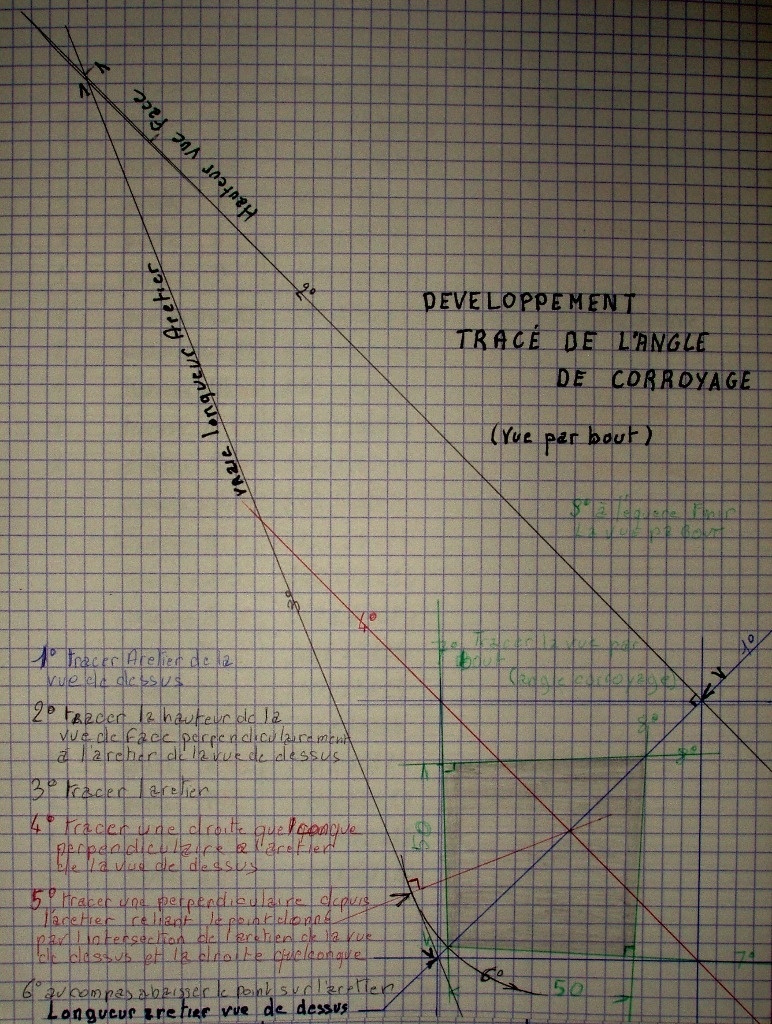 Hauteur vue Face
vraie longueur Aretier
2°
3°
4°
DEVELOPPEMENT
TRACÉ DE L'ANGLE
DE CORROYAGE
(Vue par bout)
8° à l'équerre Finir
La vue par Bout
7° Tracer la vue par
bout
(angle corroyage)
1°
8°
8°
1° tracer Aretier de la
vue de dessus
2° tracer la hauteur de la
vue de face perpendiculairement
à l'aretier de la vue de dessus
3° tracer l'aretier
4° Tracer une droite quelconque
perpendiculaire a l'aretier
de la vue de dessus
5° tracer une perpendiculaire depuis
l'aretier reliant le point donné
par l'intersection de l'aretier de la vue
de dessus et la droite quelconque
6° au compas abaisser le point sur l'aretier
Longueur aretier vue de dessus
50
6°
50
7°